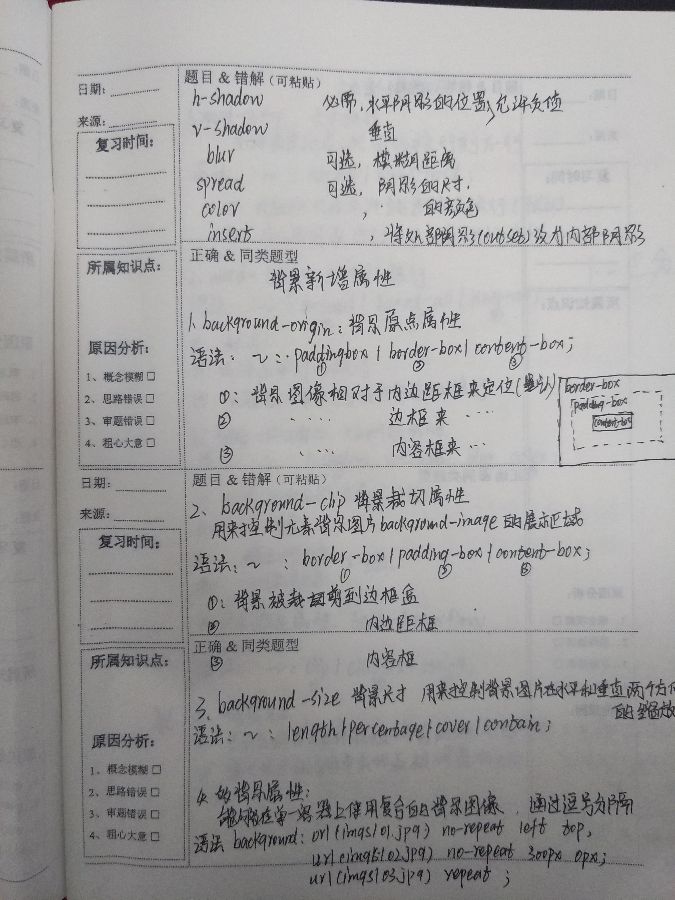 日期:
来源:
复习时间:
题目 & 错解 (可粘贴)
h-shadow 必需, 水平阴影的位置, 允许负值
v-shadow 垂直
blur 可选, 模糊距离
spread 可选, 阴影的尺寸.
color , 的颜色
insert , 将外部阴影(outset)改为内部阴影
所属知识点:
原因分析:
1、概念模糊 □
2、思路错误 □
3、审题错误 □
4、粗心大意 □
正确 & 同类题型
背景新增属性
1. background-origin: 背景原点属性
语法: ~: paddingbox | border-box | content-box;
① ② ③
①: 背景图像相对于内边距框来定位(默认)
② ···· 边框来 ····
③ ···· 内容框来 ···
border-box
padding-box
content-box
日期:
来源:
复习时间:
题目 & 错解 (可粘贴)
2、background-clip 背景裁切属性
用来控制元素背景图片background-image的展示区域
语法: ~ : border-box | padding-box | content-box;
① ② ③
①: 背景被裁剪到边框盒
② 内边距框
所属知识点:
原因分析:
1、概念模糊 □
2、思路错误 □
3、审题错误 □
4、粗心大意 □
正确 & 同类题型
③ 内容框
3. background-size 背景尺寸 用来控制背景图片在水平和垂直两个方向
的缩放
语法: ~ : length | percentage | cover | contain;
4. 背景属性:
能够在单一容器上使用复合的背景图像, 通过逗号分隔
语法 background: url(imgs/01.jpg) no-repeat left top,
url(imgs/02.jpg) no-repeat 300px 0px;
url(imgs/03.jpg) repeat ;